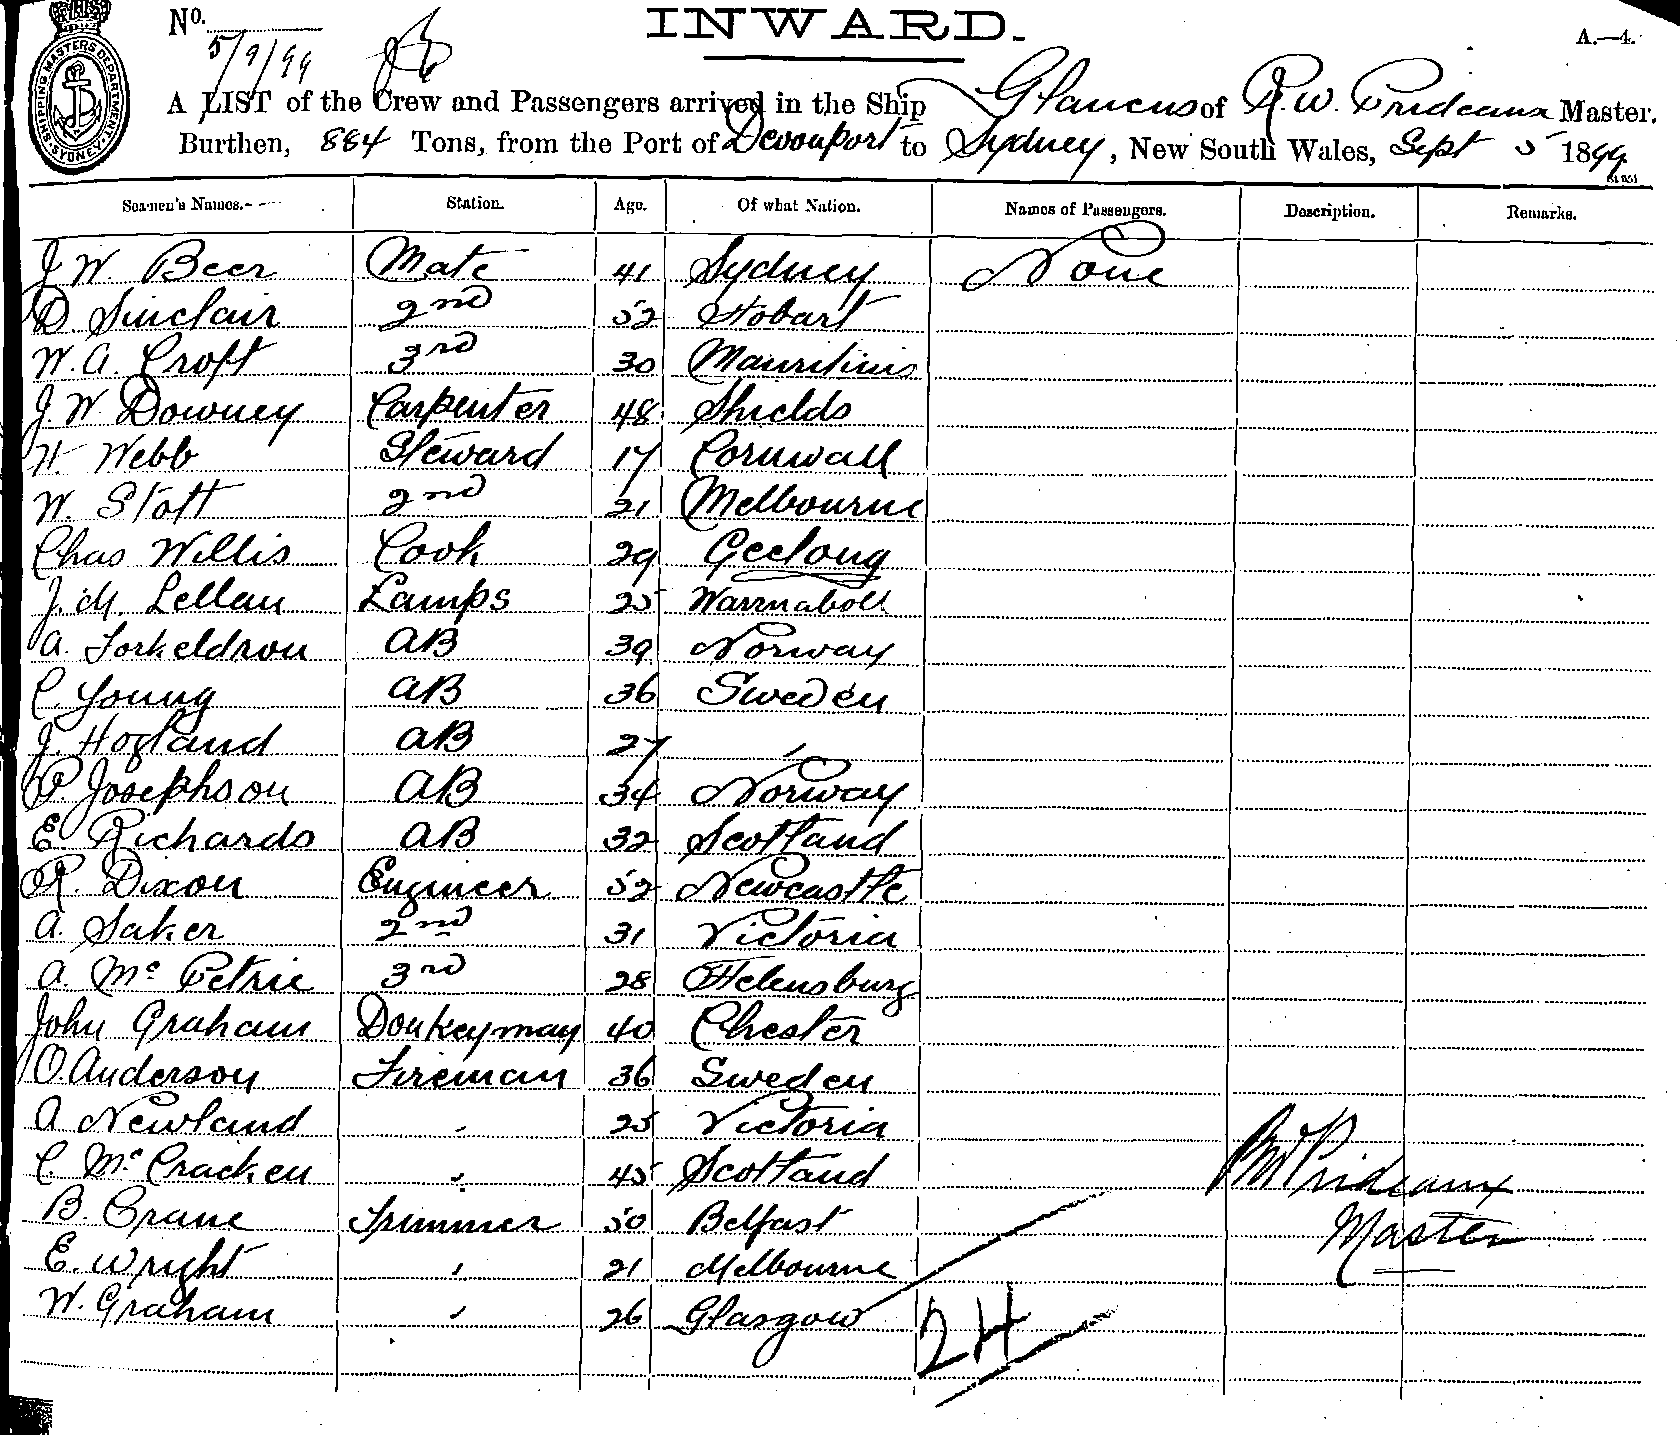 No.
INWARD.
A.—4.
5/9/99
SHIPPING MASTERS DEPARTMENT SYDNEY
A LIST of the Crew and Passengers arrived in the Ship Glaucus of R. W. Prideaux Master.
Burthen, 884 Tons, from the Port of Devonport to Sydney, New South Wales, Sept 5 1899
Seamen's Names. Station. Age. Of what Nation. Names of Passengers. Description. Remarks.
J. W. Beer Mate 41 Sydney None
D. Sinclair 2nd 52 Hobart
W. A. Croft 3rd 30 Mauritius
J. W. Downey Carpenter 48 Shields
H. Webb Steward 17 Cornwall
W. Stott 2nd 21 Melbourne
Chas Willis Cook 29 Geelong
J. M. Lellan Lamps 25 Warrnaboll
A. Torkeldron AB 39 Norway
C. Young AB 36 Sweden
J. Hogland AB 27 ,
P. Josephson AB 34 Norway
E. Richards AB 32 Scotland
R. Dixon Engineer 52 Newcastle
A. Saker 2nd 31 Victoria
A. Mc Petrie 3rd 28 Helensburg
John Graham Donkeyman 40 Chester
O. Anderson Fireman 36 Sweden
A Newland , 25 Victoria
C. Mc Cracken , 45 Scotland
B. Crane Trimmer 50 Belfast
E. Wright , 21 Melbourne
W. Graham , 26 Glasgow
RW Prideaux
Master
24